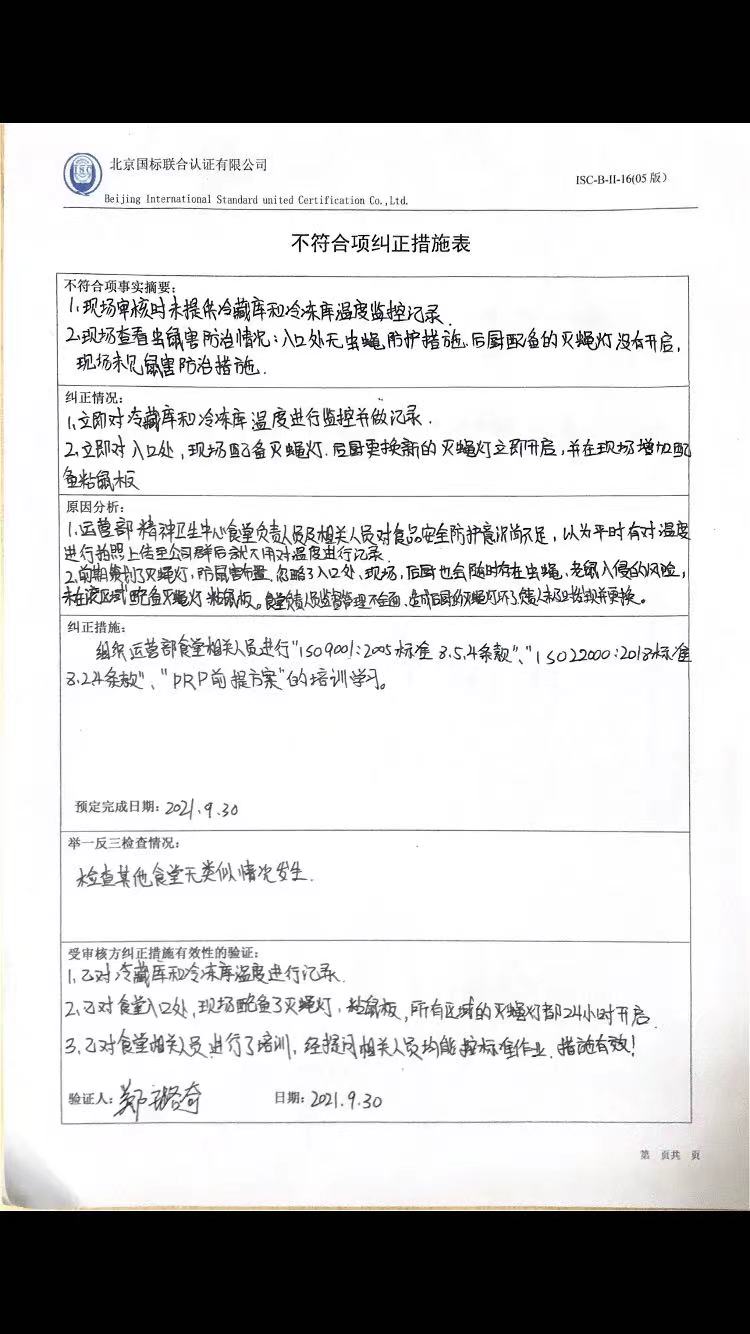 北京国标联合认证有限公司
ISC-B-II-16(05版)
Beijing International Standard united Certification Co.,Ltd.
不符合项纠正措施表
不符合项事实摘要:
1.现场审核时未提供冷藏库和冷冻库温度监控记录.
2.现场查看虫鼠害防治情况:入口处无虫蝇防护措施.后厨配备的灭蝇灯没有开启,
现场未见鼠害防治措施.
纠正情况:
1.立即对冷藏库和冷冻库温度进行监控并做记录.
2.立即对入口处,现场配备灭蝇灯.后厨更换新的灭蝇灯立即开启,并在现场增加配
备粘鼠板
原因分析:
1.运营部精神卫生中心食堂负责人员及相关人员对食品安全防护意识尚不足,以为平时有对温度
进行拍照上传至公司群后就不用对温度进行记录.
2.前期策划了灭蝇灯,防鼠害布置,忽略了入口处、现场,后厨也会随时存在虫蝇,老鼠入侵的风险,
未在该区域配备灭蝇灯.粘鼠板。食堂负责人员监督管理不全面,
纠正措施:
组织运营部食堂相关人员进行"ISO9001:2005标准8.5.4条款"、"ISO22000:2018标准
8.2.4条款"、"PRP前提方案"的培训学习。
预定完成日期: 2021.9.30
举一反三检查情况:
检查其他食堂无类似情况发生.
受审核方纠正措施有效性的验证:
1.已对冷藏库和冷冻库温度进行记录.
2.已对食堂入口处,现场配备了灭蝇灯,粘鼠板,所有区域的灭蝇灯都24小时开启.
3.已对食堂相关人员进行了培训,经提问相关人员均能按标准作业.措施有效!
验证人: 日期: 2021.9.30
第 页共 页